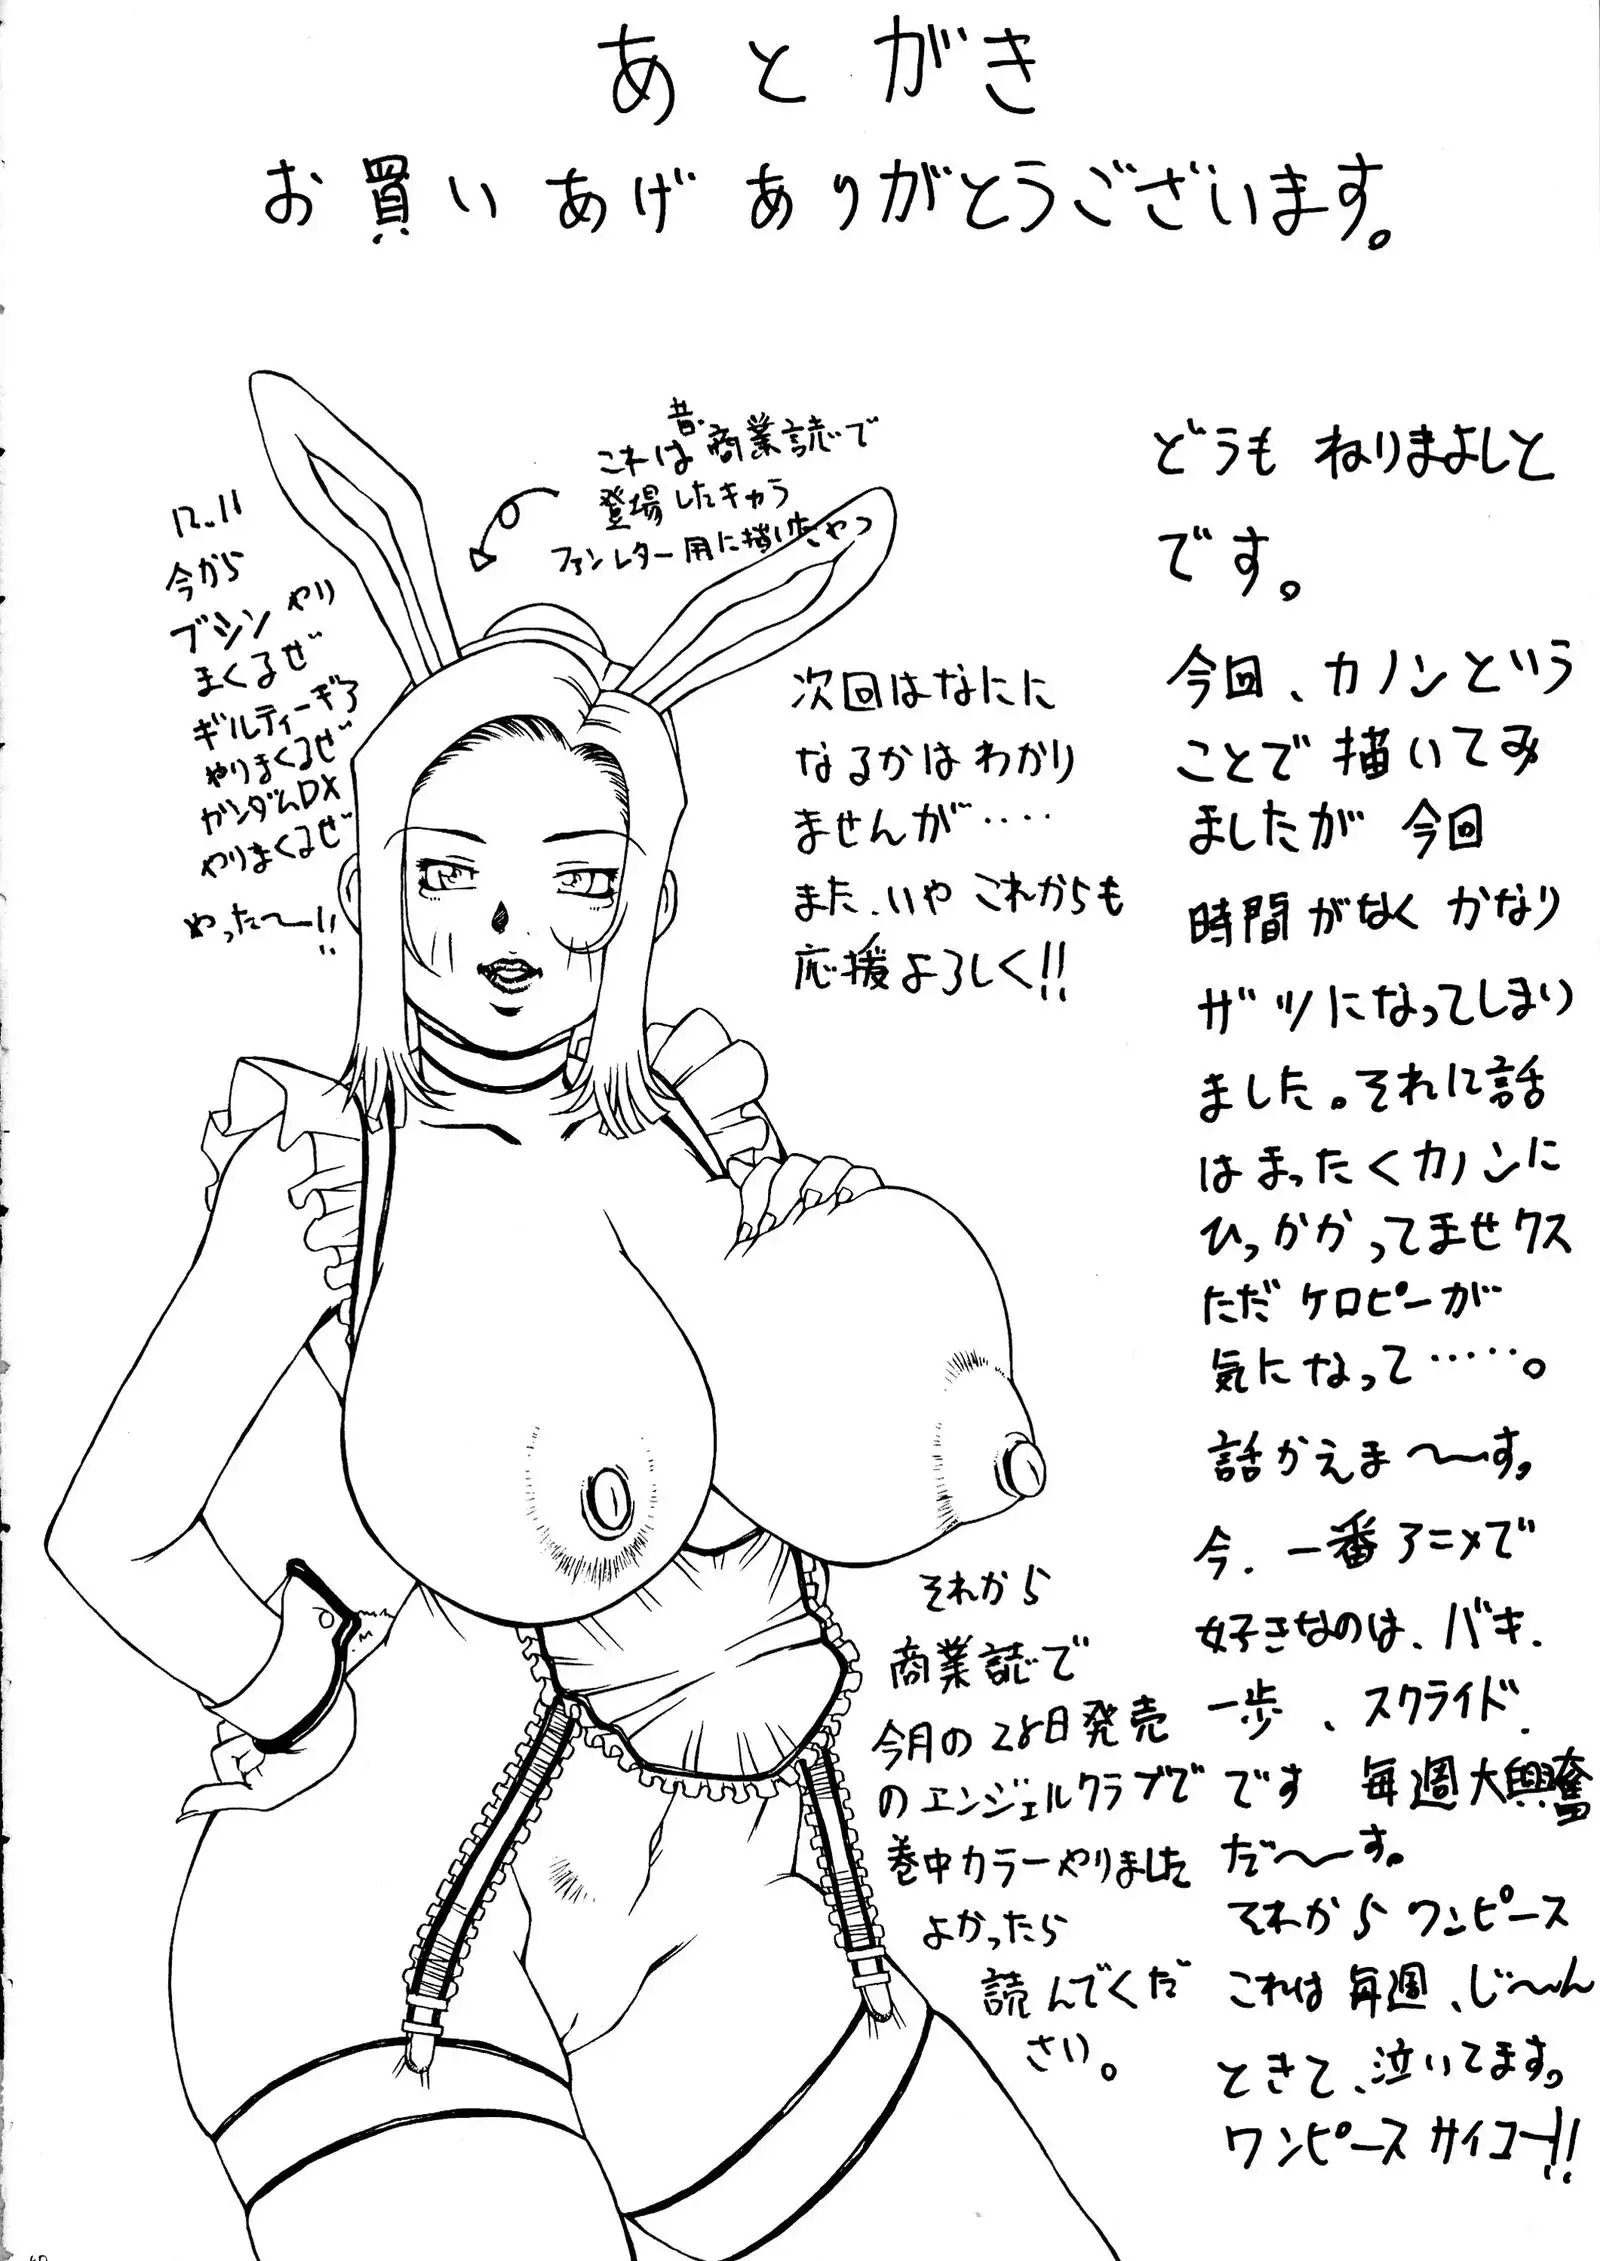 あとがき
お買いあげありがとうございます。
どうも ねりまよしと
です。
今回、カノンという
ことで描いてみ
ましたが 今回
時間がなく かなり
ザツになってしまい
ました。それに話
はまったくカノンに
ひっかかってませクス
ただケロピーが
気になって……。
話かえま〜〜す。
今、一番アニメで
好きなのは、バキ、
一歩、スクライド
です 毎週大興奮
だ〜〜す。
それから ワンピース
これは毎週、じ〜〜ん
ときて、泣いてます。
ワンピース サイコー!!
昔、
これは商業誌で
登場したキャラ
ファンレター用に描いたやつ
次回はなにに
なるかはわかり
ませんが‥‥
また、いや これからも
応援よろしく!!
12.11
今から
ブシンやり
まくるぜ
ギルティーギア
やりまくるぜ
ガンダムDX
やりまくるぜ
やった〜ー!!
それから
商業誌で
今月の28日発売
のエンジェルクラブで
巻中カラーやりました
よかったら
読んでくだ
さい。